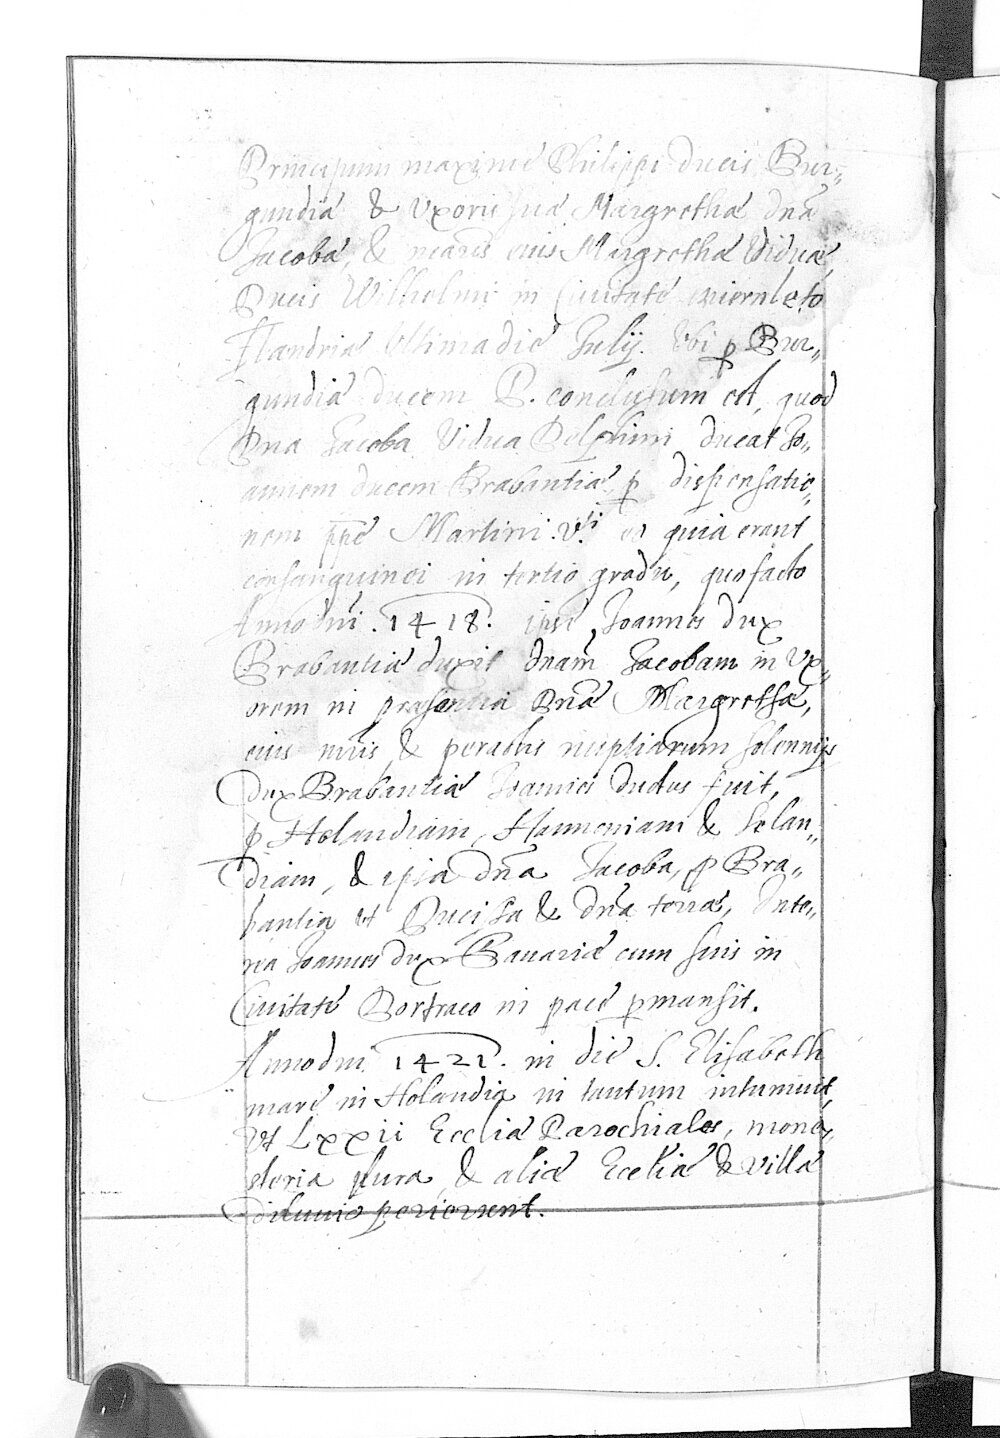 Principum maxime Philippi Ducis Bur„
gundiæ & Vxoris suæ Margrethæ dn̄æ
Jacobæ, & mr̄is eius Margrethæ Viduæ
Ducis Wilhelmi in Ciuitate
Flandriæ Vltima die Julij. Vbi p Bur„
gundiæ ducem P. conclusum est, quod
Dn̄a Jacoba Vidua Delphini ducat Jo„
annem ducem Brabantiæ, p dispensatio„
nem pp̄e Martini V.ti eo quia erant
consanguinei in tertio gradu, quo facto
Anno dn̄i. 1418. ipse Joannes dux
Brabantiæ duxit dnam̄ Jacobam in Vx„
orem in præsentia Dn̄æ Margrethæ,
eius mr̄is & peractis nuptiarum solennijs
Dux Brabantiæ Joannes ductus fuit,
p Holandiam, Hannoniam & Selan„
diam, & ipsa dn̄a Jacoba, p Bra„
bantia vt Ducissa & dn̄a terræ, Inte„
rea Joannes dux Bauariæ cum suis in
Ciuitate Dortraco in pace pmansit.
Anno dni 1421. in die S. Elisabeth
mare in Holandia in tantum intumuit,
Vt Lxxii Ecclīæ Parochiales, mone„
steria plura & aliæ Eccliæ & villæ
diluuio perierrent.